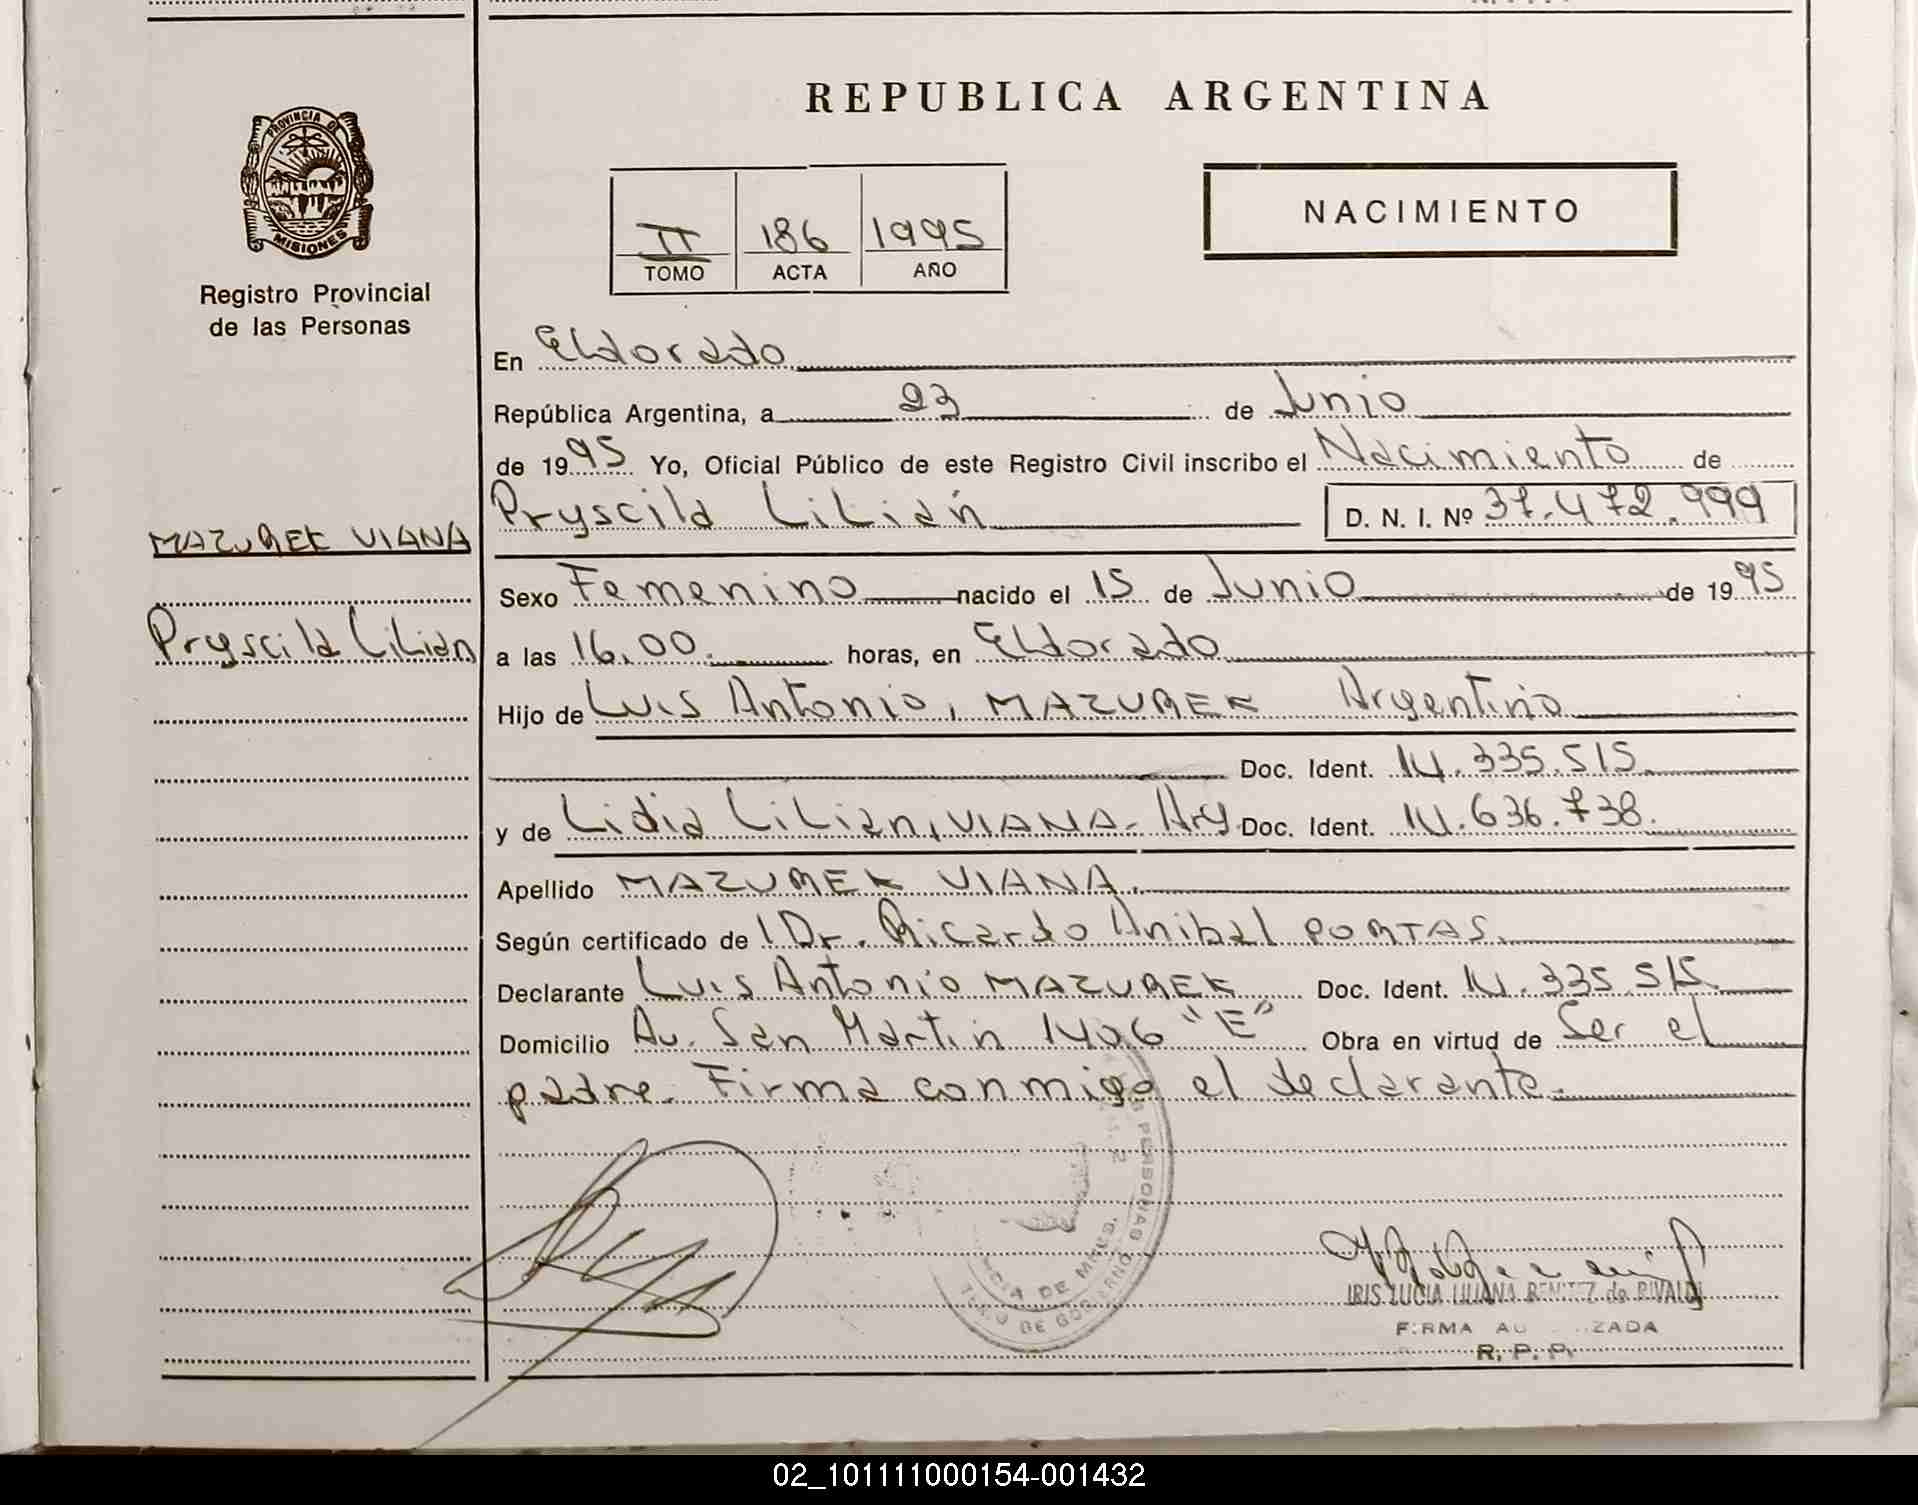 REPUBLICA ARGENTINA
PROVINCIA DE
MISIONES
Registro Provincial
de las Personas
II 186 1995
TOMO ACTA AÑO
NACIMIENTO
En Eldorado
República Argentina, a 23 de Junio
de 1995 Yo, Oficial Público de este Registro Civil inscribo el Nacimiento de
Pryscila Lilián D. N. I. Nº 37.472.999
MAZUREK VIANA
Sexo Femenino nacido el 15 de Junio de 1995
Pryscila Lilian
a las 16,00 horas, en Eldorado
Hijo de Luis Antonio, MAZUREK Argentino
Doc. Ident. 14.335.515.
y de Lidia Lilian, VIANA- Arg Doc. Ident. 14.636.738.
Apellido MAZUREK VIANA.
Según certificado de Dr. Ricardo Anibal PORTAS.
Declarante Luis Antonio MAZUREK Doc. Ident. 14.335.515
Domicilio Av. San Martin 1406 "E" Obra en virtud de Ser el
padre. Firma conmigo el declarante.
PERSONAS
DE GOBIERNO
DE MNES.
IRIS LUCIA LILIANA BENITEZ de RIVALDI
FIRMA
R. P. P.
02_101111000154-001432